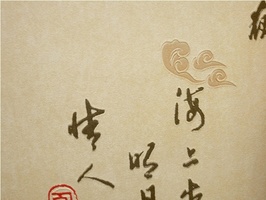 海上生
明月
情人